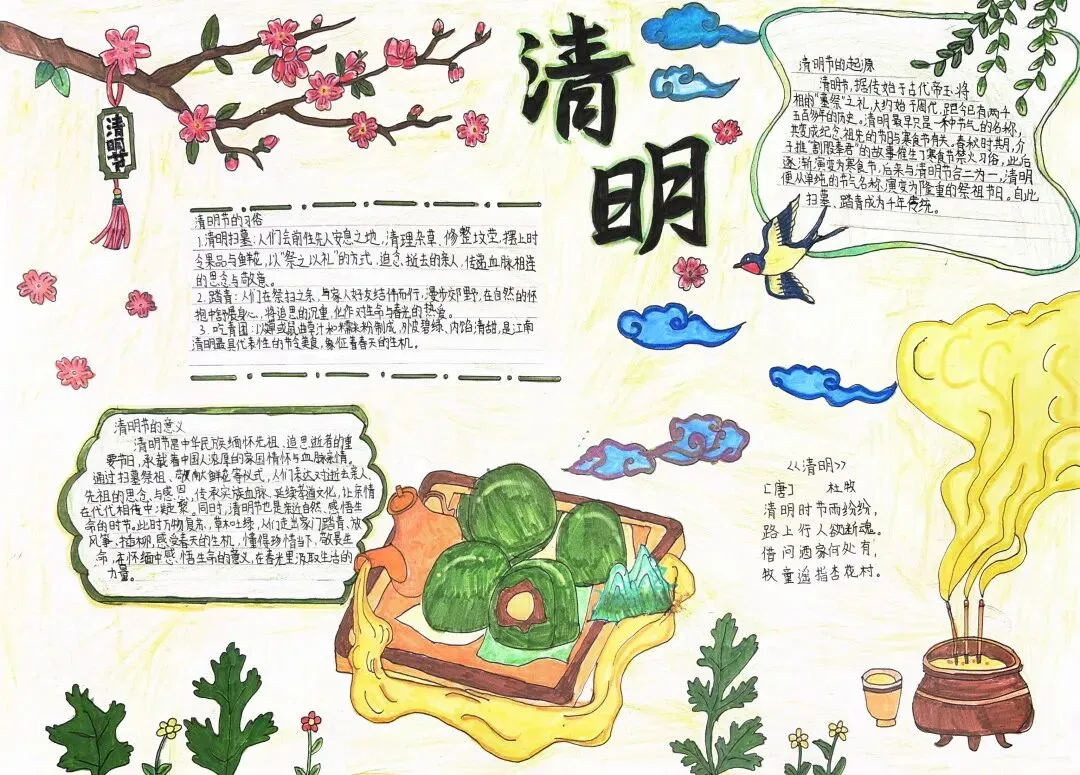 清明
清明节
清明节的起源
清明节,据传始于古代帝王将
相的“墓祭”之礼,大约始于周代,距今已有两千
五百多年的历史。清明最早只是一种节气的名称,
其变成纪念祖先的节日与寒食节有关。春秋时期,介
子推“割股奉君”的故事催生了寒食节禁火习俗,此后
逐渐演变为寒食节,后来与清明节合二为一,清明
便从单纯的节气名称演变为隆重的祭祖节日。自此
扫墓、踏青成为千年传统。
清明节的习俗
1.清明扫墓:人们会前往先人安息之地,清理杂草、修整坟茔,摆上时
令果品与鲜花,以“祭之以礼”的方式,追念逝去的亲人,传递血脉相连
的思念与敬意。
2.踏青:人们在祭扫之余,与家人好友结伴而行,漫步郊野,在自然的怀
抱中舒缓身心,将追思的沉重,化作对生命与春光的热爱。
3.吃青团:以艾或鼠曲草汁和糯米粉制成,外皮碧绿、内馅清甜,是江南
清明最具代表性的节令美食,象征着春天的生机。
清明节的意义
清明节是中华民族缅怀先祖、追思逝者的重
要节日,承载着中国人浓厚的家国情怀与血脉亲情,
通过扫墓祭祖、敬献鲜花等仪式,人们表达对逝去亲人、
先祖的思念与感恩,传承家族血脉、延续孝道文化,让亲情
在代代相传中凝聚。同时,清明节也是亲近自然、感悟生
命的时节。此时万物复苏,草木吐绿,人们走出家门踏青、放
风筝、插柳,感受春天的生机,懂得珍惜当下、敬畏生
命,在怀缅中感悟生命的意义,在春光里汲取生活的
力量。
《清明》
[唐] 杜牧
清明时节雨纷纷,
路上行人欲断魂。
借问酒家何处有,
牧童遥指杏花村。